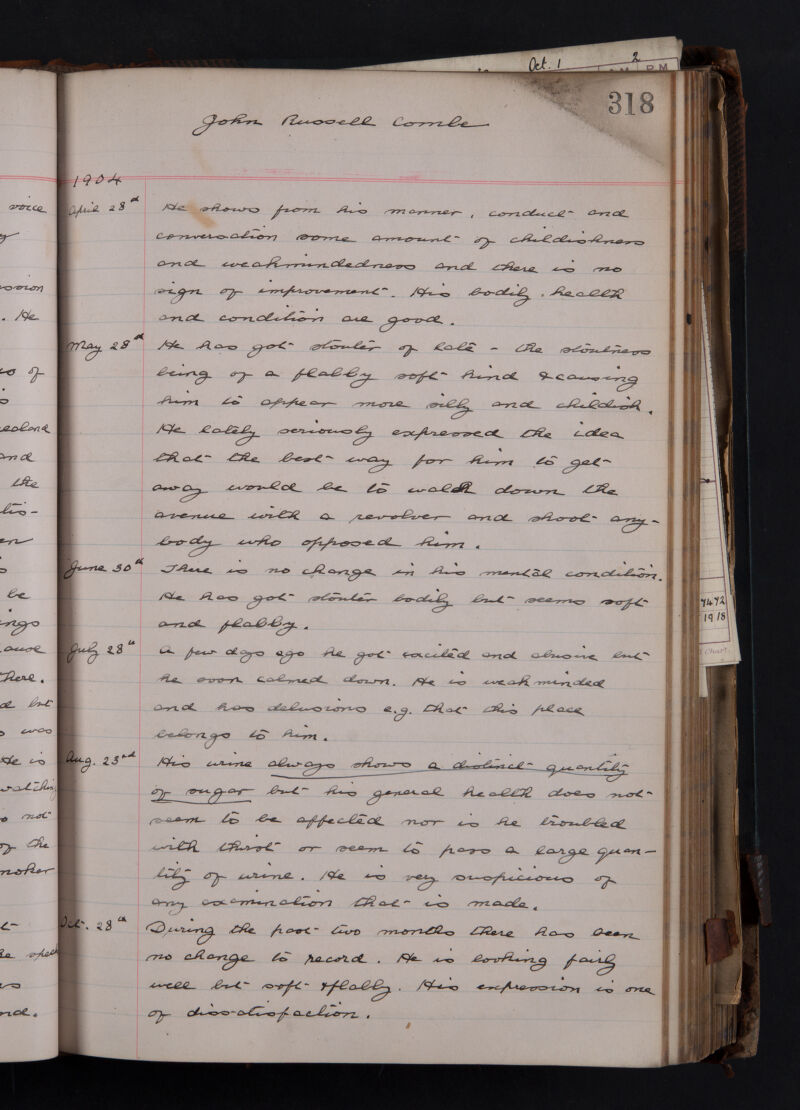 Oct. 1 2
P M
318
John Russell Combe
1904
April 28th He shows from his manner, conduct and
conversation some amount of childishness
and weakmindedness and there is no
sign of improvement. His bodily health
and condition are good.
May 28th He has got stouter of late - the stoutness
being of a flabby soft kind & causing
him to appear more silly and childish.
He lately seriously expressed the idea
that the best way for him to get
away would be to walk down the
avenue with a revolver and shoot any-
body who opposed him.
June 30th There is no change in his mental condition.
He has got stouter bodily but seems soft
and flabby.
July 28th A few days ago he got excited and abusive but
he soon calmed down. He is weak minded
and has delusions e.g. that this place
belongs to him.
Aug. 23rd His urine always shows a distinct quantity
of sugar but his general health does not
seem to be affected nor is he troubled
with thirst or seem to pass a large quan-
tity of urine. He is very suspicious of
any examination that is made.
Oct. 28th During the past two months there has been
no change to record. He is looking fairly
well but soft & flabby. His expression is one
of dissatisfaction.
voice
. He
of
and
the
be
there.
but
was
He is
not
of the
7472
1918
Chart.